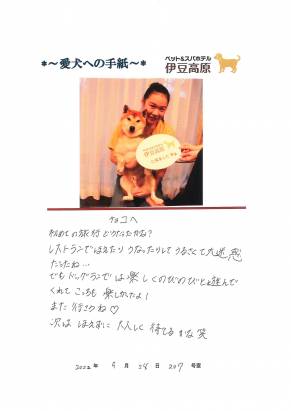 *～愛犬への手紙～*
ペット&スパホテル
伊豆高原
ペット&スパホテル
伊豆高原
チョコへ
初めての旅行どうだったかな?
レストランでほえたりうなったりしてうるさくて大迷惑
だったね…
でもドッグランでは楽しくのびのびと遊んで
くれてこっちも楽しかったよ!
また行こうね♡
次はほえずに大人しく待てるかな笑
2022年 9月 28日 207号室